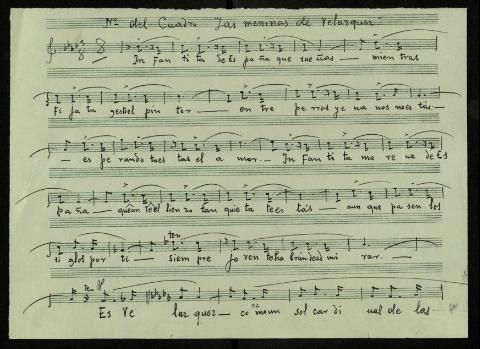 Nº del Cuadro "Las meninas de Velazquez"
In fan ti ta de Es pa ña que sue ñas — mien tras
fi ja tu es bel pin tor — en tre pe rros y e na nos no es tás —
— es pe rando tu es tas el a mor. — In fan ti ta mo re na de Es
pa ña — que an te el lien zo tan quie ta te es tás — aun que pa sen los
si glos por ti — siem pre jo ven te ha bran de mi rar. —
ten
ten
Es Ve laz quez — co mo un sol car di nal de las